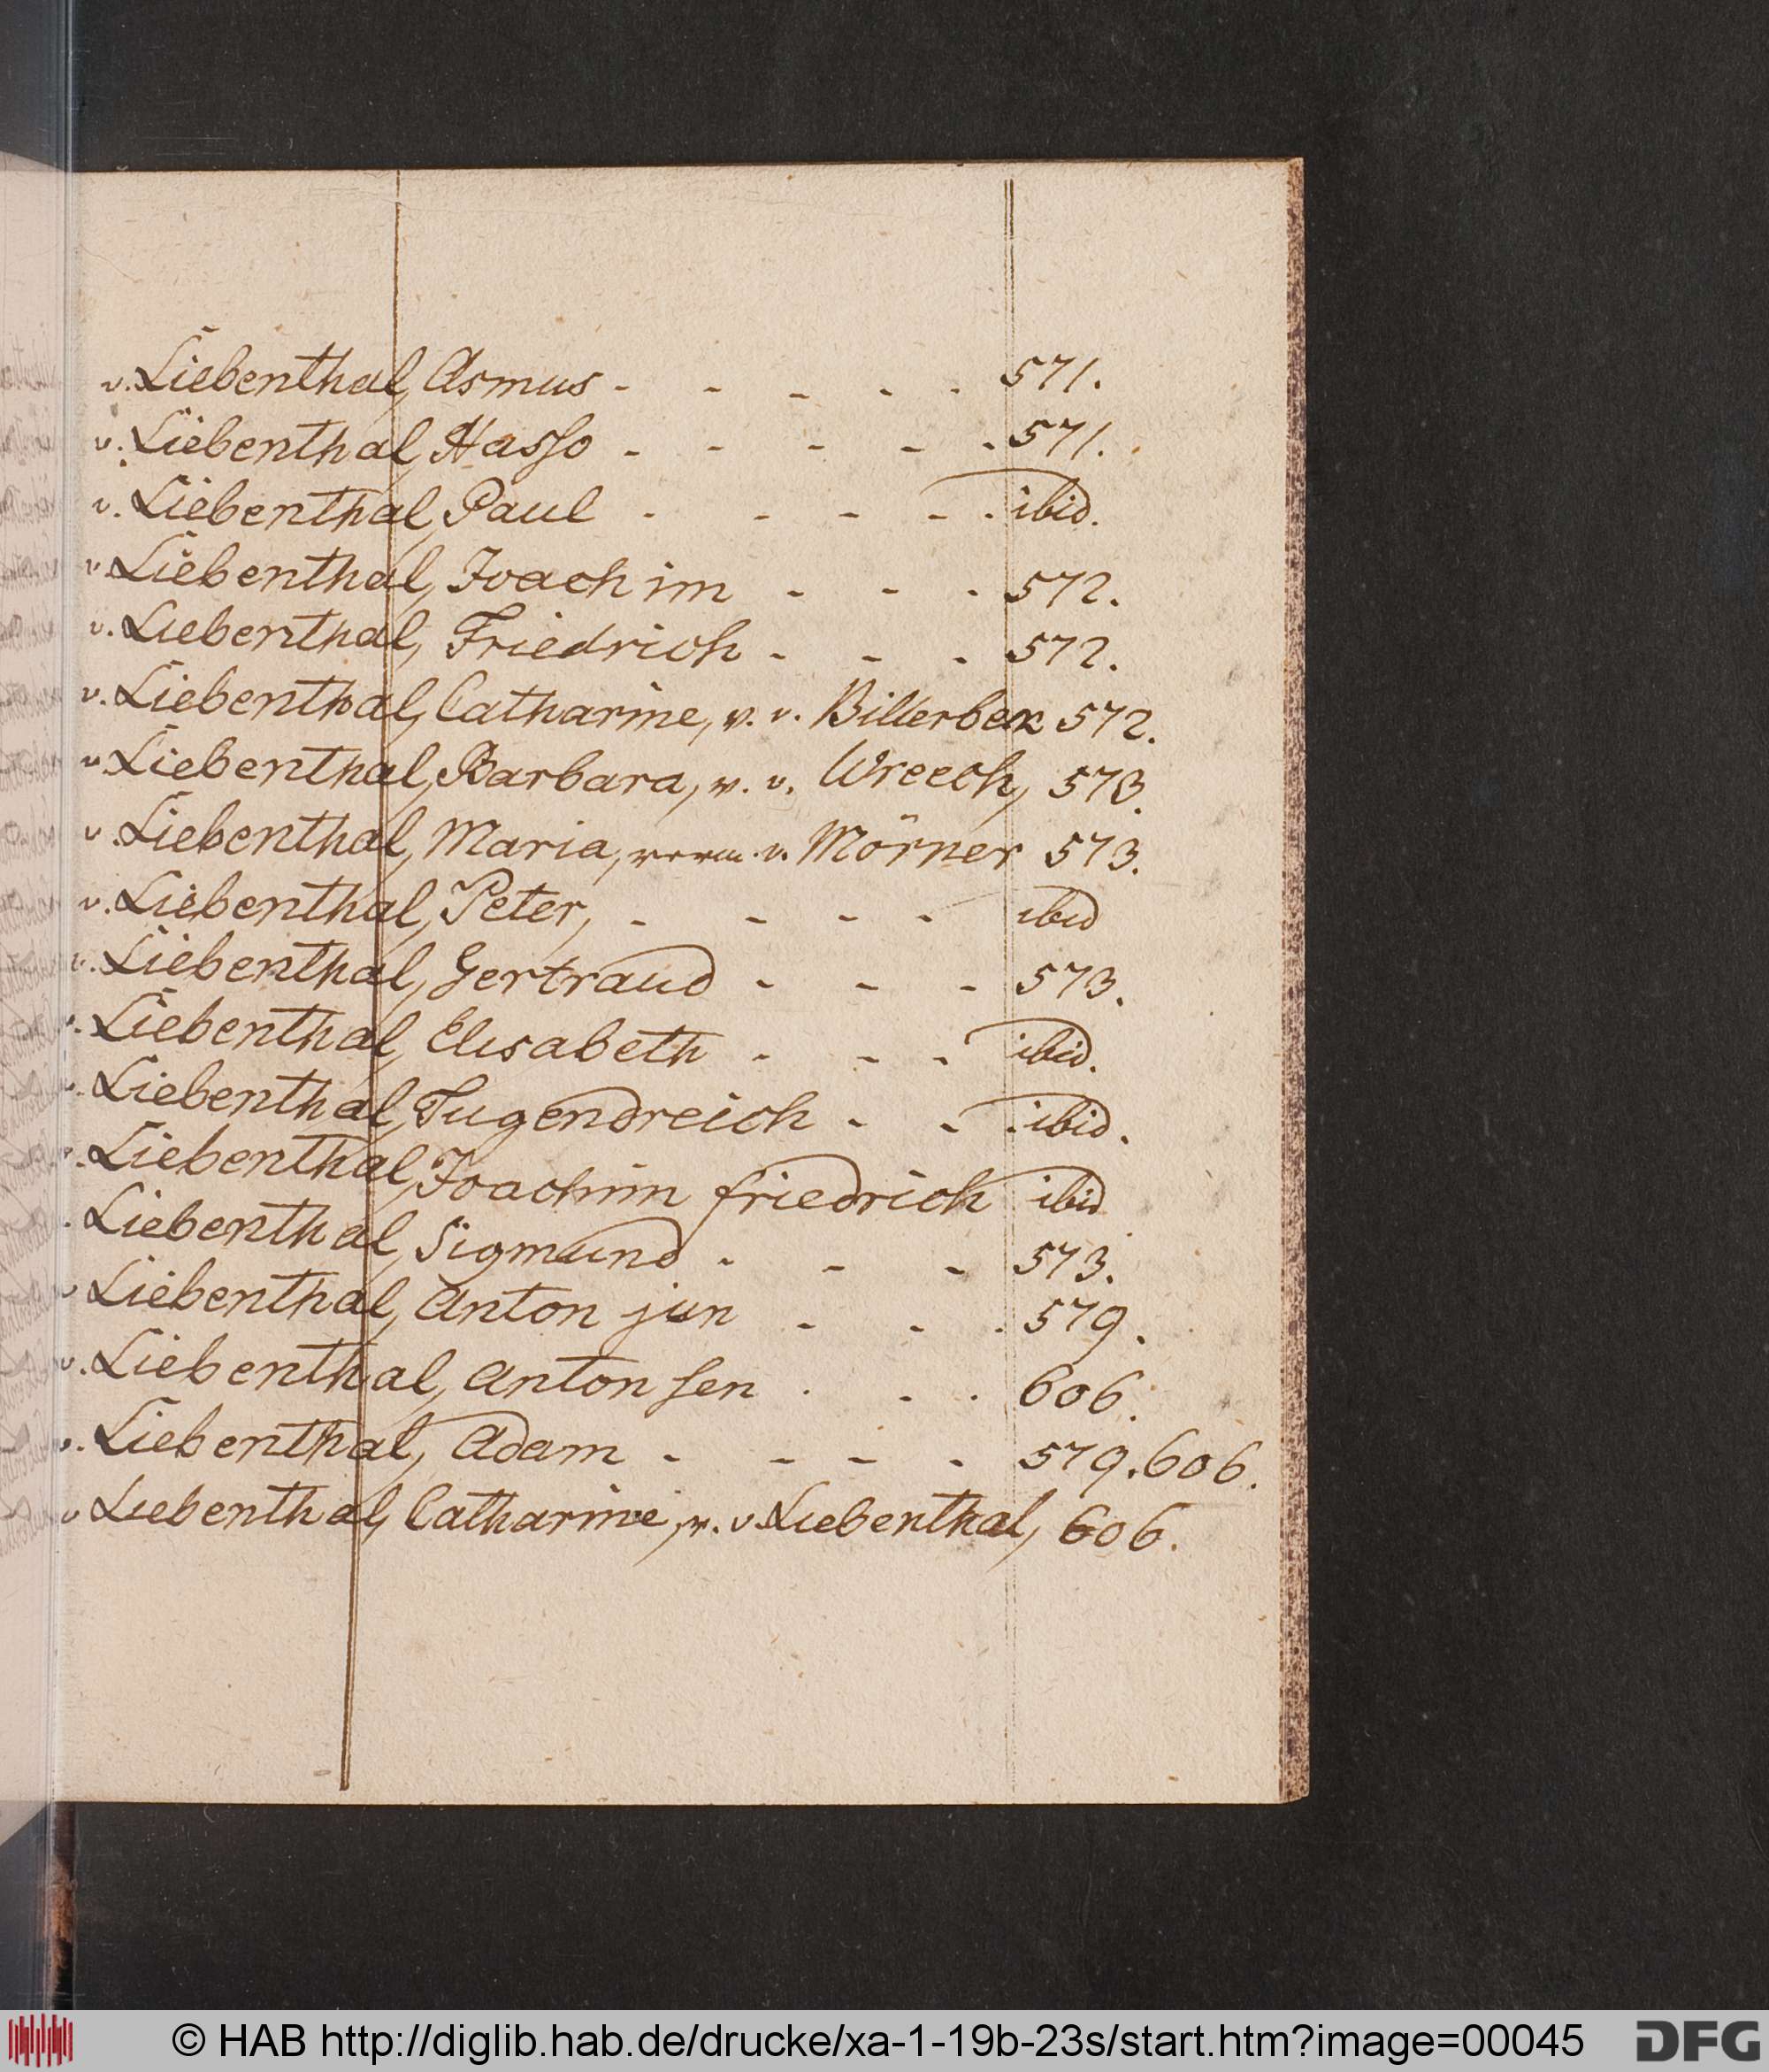 v. Liebenthal, Asmus - - - - - 571.
v. Liebenthal, Hasso - - - - - 571.
v. Liebenthal, Paul - - - - - ibid.
v. Liebenthal, Joachim - - - 572.
v. Liebenthal, Friedrich - - - 572.
v. Liebenthal, Catharine, v. v. Billerbek 572.
v. Liebenthal, Barbara, v. v. Wreech, 573.
v. Liebenthal, Maria, verm. v. Mörner 573.
v. Liebenthal, Peter, - - - - ibid
v. Liebenthal, Gertraud - - - 573.
v. Liebenthal, Elisabeth - - - ibid.
v. Liebenthal, Tugendreich - - - ibid.
v. Liebenthal, Joachim friedrich ibid
. Liebenthal, Sigmund - - - 573.
v Liebenthal, Anton jun - - - 579.
v. Liebenthal, Anton sen - - - 606.
v. Liebenthal, Adam - - - - 579.606.
v Liebenthal, Catharine, v. v. Liebenthal, 606.
© HAB http://diglib.hab.de/drucke/xa-1-19b-23s/start.htm?image=00045 DFG